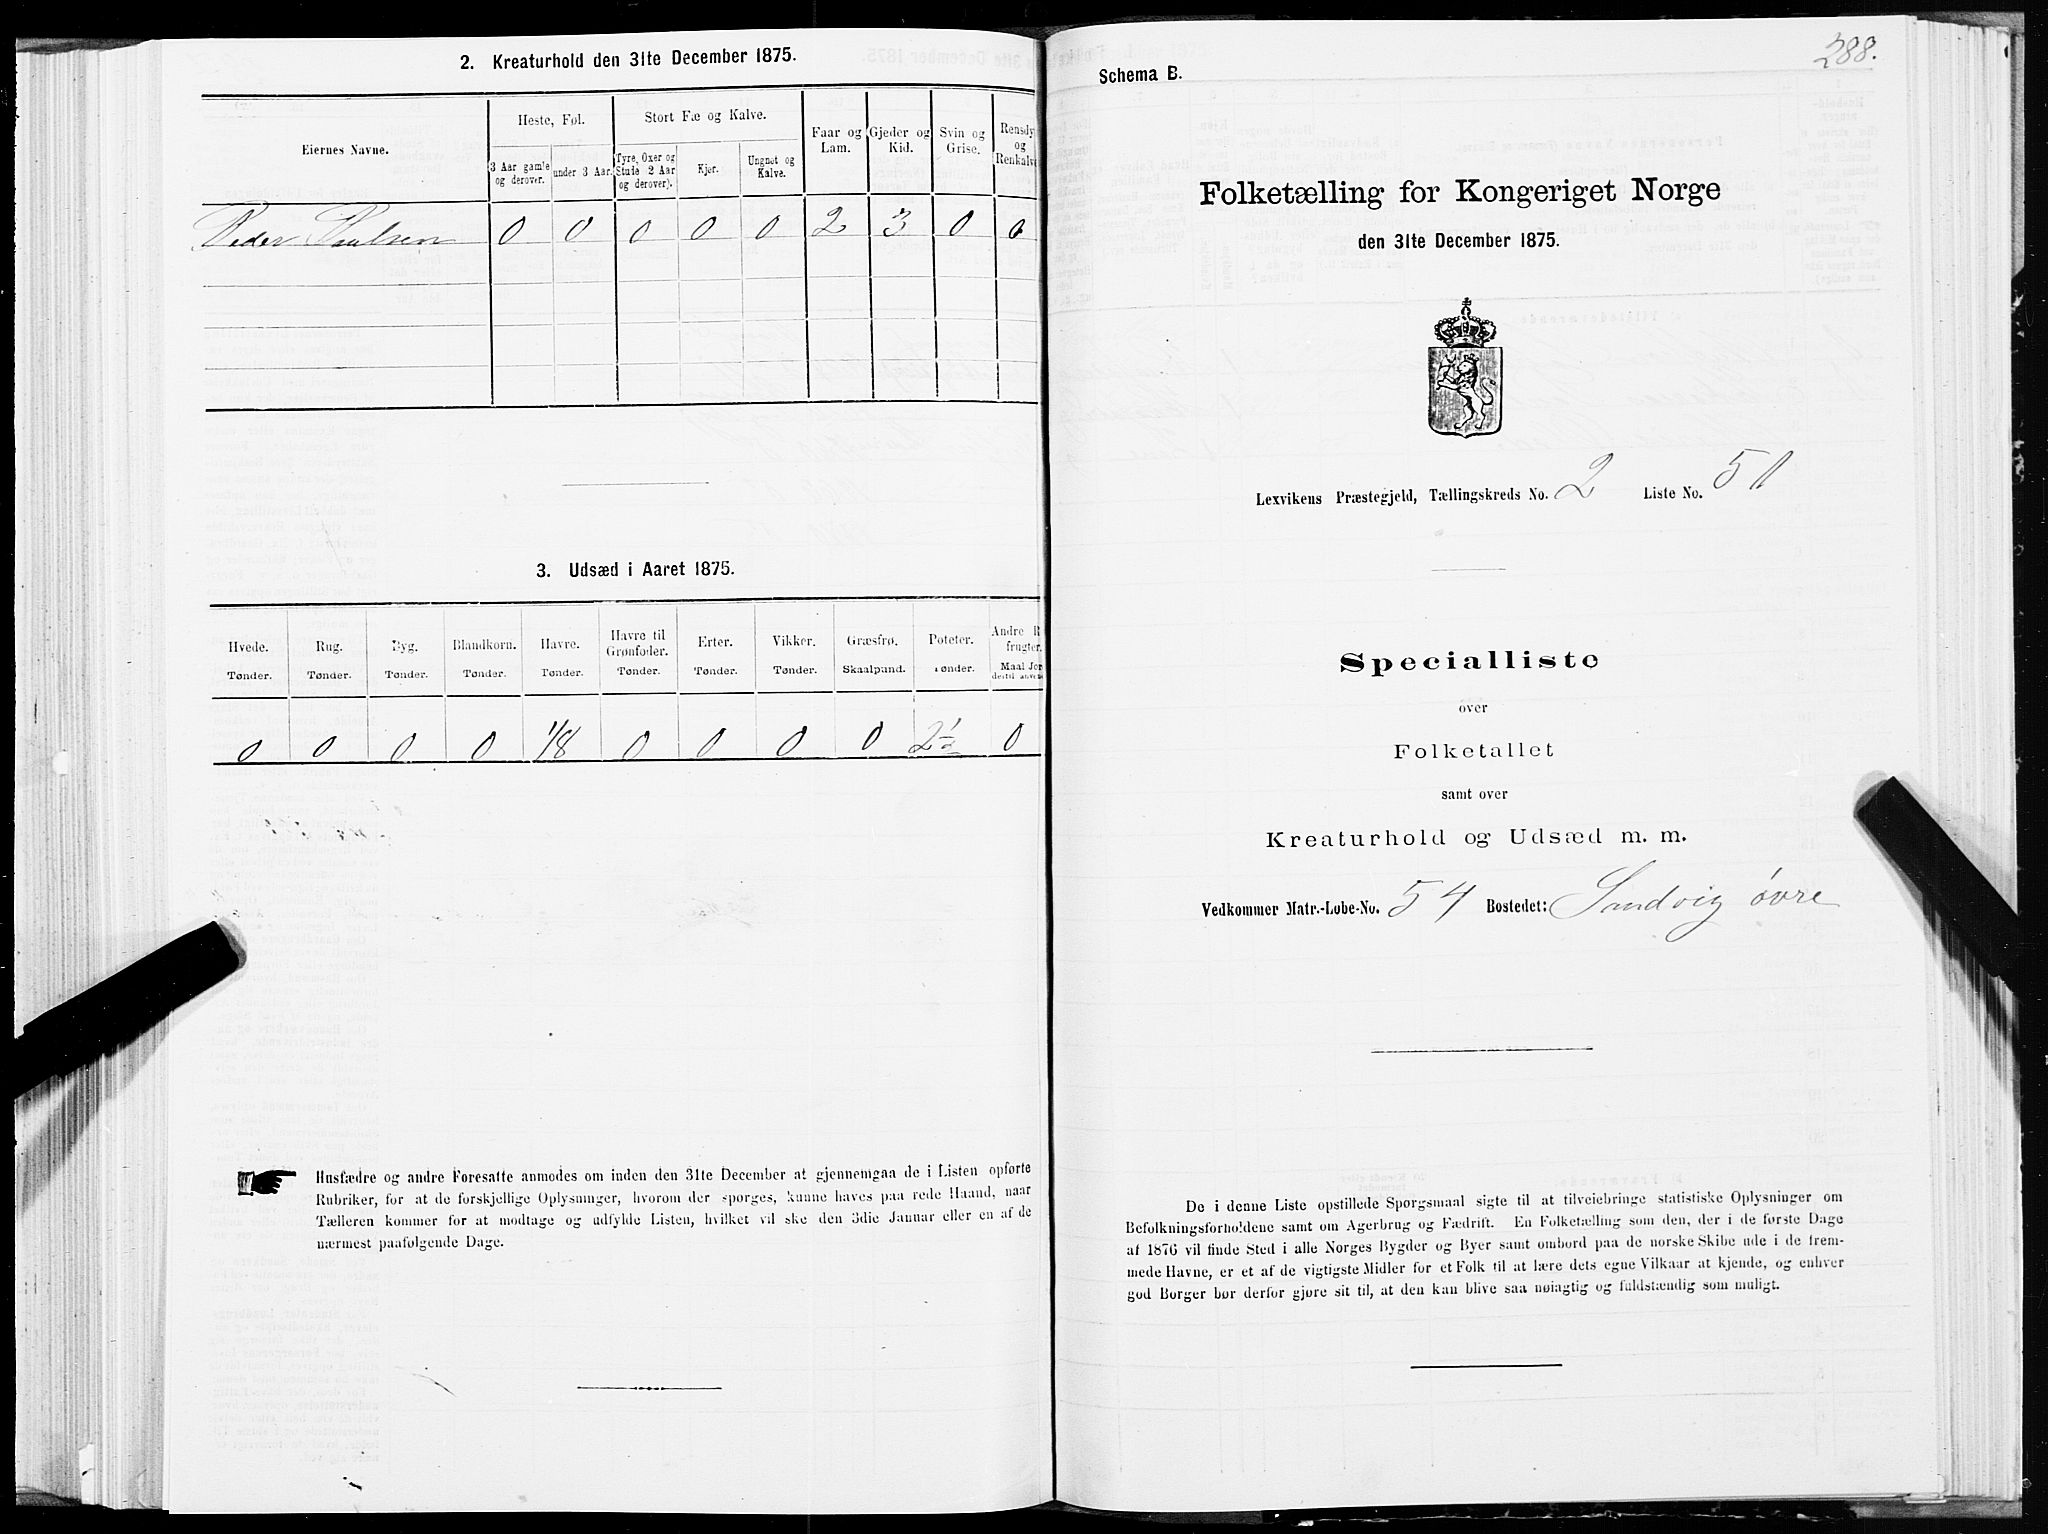 2. Kreaturhold den 31te December 1875.
Eiernes Navne.
Heste, Føl.
Stort Fæ og Kalve.
Faar og Lam.
Gjeder og Kid.
Svin og Grise.
Rensdy og Renkalve
3 Aar gamle og derover.
under 3 Aar.
Tyre, Oxer og Stude 2 Aar og derover).
Kjør.
Ungnøt og Kalve.
Peder Paulsen 0 0 0 0 0 2 3 0 0
3. Udsæd i Aaret 1875.
Hvede. Rug. Byg. Blandkorn. Havre. Havre til Grønfoder. Erter. Vikker. Græsfrø. Poteter. Andre R frugter.
Tønder. Tønder. Tønder. Tønder. Tønder. Tønder. Tønder. Tønder. Skaalpund. Tønder. Maal Jor dertil anve
0 0 0 0 1/8 0 0 0 0 2 1/2 0
Husfædre og andre Foresatte anmodes om inden den 31te December at gjennemgaa de i Listen opførte
Rubriker, for at de forskjellige Oplysninger, hvorom der spørges, kunne haves paa rede Haand, naar
Tælleren kommer for at modtage og udfylde Listen, hvilket vil ske den 3die Januar eller en af de
nærmest paafølgende Dage.
288.
Schema B.
Folketælling for Kongeriget Norge
den 31te December 1875.
Lexvikens Præstegjeld, Tællingskreds No. 2 Liste No. 51
Specialliste
over
Folketallet
samt over
Kreaturhold og Udsæd m. m.
Vedkommer Matr.-Løbe-No. 54 Bostedet: Sandvig øvre
De i denne Liste opstillede Spørgsmaal sigte til at tilveiebringe statistiske Oplysninger om
Befolkningsforholdene samt om Agerbrug og Fædrift. En Folketælling som den, der i de første Dage
af 1876 vil finde Sted i alle Norges Bygder og Byer samt ombord paa de norske Skibe ude i de frem-
mede Havne, er et af de vigtigste Midler for et Folk til at lære dets egne Vilkaar at kjende, og enhver
god Borger bør derfor gjøre sit til, at den kan blive saa nøiagtig og fuldstændig som muligt.